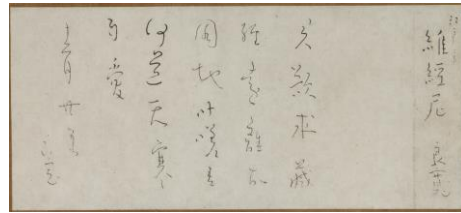 維經尼 良寛
君欲求蔵
經遠離故
園地吁嗟吾
何道天寒
自愛
十二月廿五日
良寛